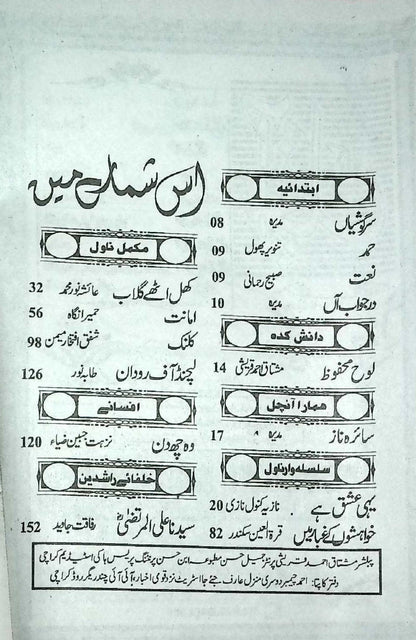 اس شمارے میں
ابتدائیہ
سرگوشیاں مدیرہ 08
حمد تنویر پھول 09
نعت صبیح رحمانی 09
در جواب آں مدیرہ 10
دانش کدہ
لوح محفوظ مشتاق احمد قریشی 14
ہمارا آنچل
سائرہ ناز مدیرہ 17
سلسلہ وار ناول
یہی عشق ہے نازیہ کنول نازی 20
خواہشوں کے غبار میں قرۃ العین سکندر 82
مکمل ناول
کھل اٹھے گلاب عائشہ نور محمد 32
امانت حمیرا نگاہ 56
کلنک شفق افتخار میمن 98
لیجنڈ آف رودان طابہ نور 126
افسانے
وہ چھ دن نزہت جبین ضیاء 120
خلفائے راشدین
سیدنا علی المرتضیٰؓ رفاقت جاوید 152
پبلشر مشتاق احمد قریشی پرنٹر جمیل حسن مطبوعہ ابن حسن پرنٹنگ پریس ہاکی اسٹیڈیم کراچی
دفتر کا پتا: احمد چیمبر دوسری منزل عارف جے جا اسٹریٹ نزد قومی اخبار، آئی آئی چندریگر روڈ کراچی